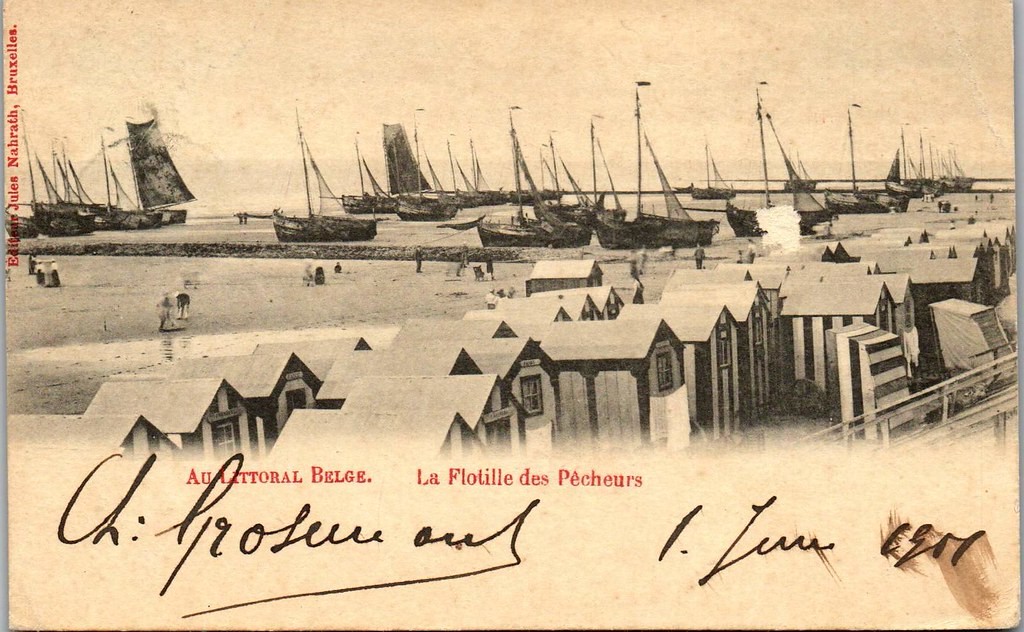 Editeur Jules Nahrath, Bruxelles.
AU LITTORAL BELGE. La Flotille des Pêcheurs
Ch: 1. Juin 1901